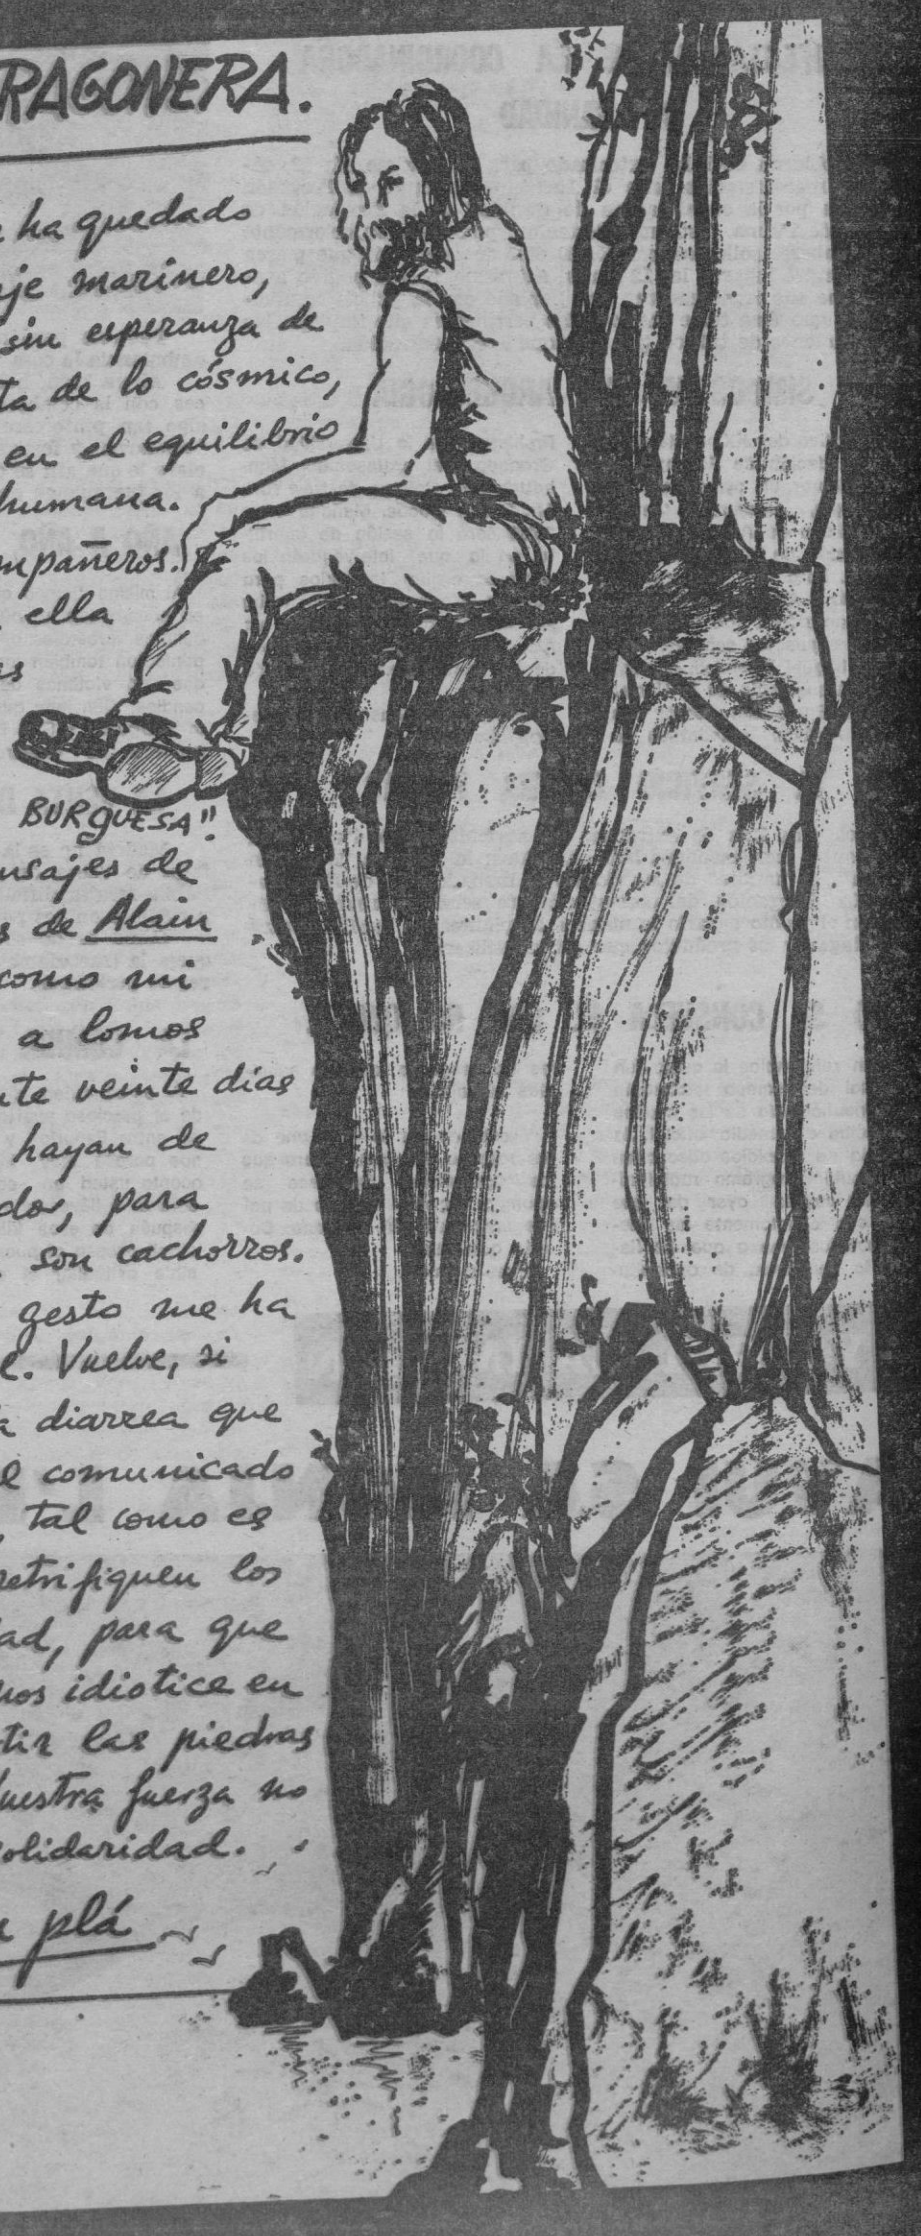 RAGONERA.
ha quedado
je marinero,
sin esperanza de
ta de lo cósmico,
en el equilibrio
humana.
mpañeros.
ella
as
BURGUESA".
nsajes de
s de Alain
como mi
a lomos
nte veinte días
hayan de
dos, para
son cachorros.
gesto me ha
e. Vuelve, si
a diarrea que
el comunicado
, tal como es
retrifiquen los
ad, para que
nos idiotice en
tir las piedras
uestra fuerza no
olidaridad.
plá